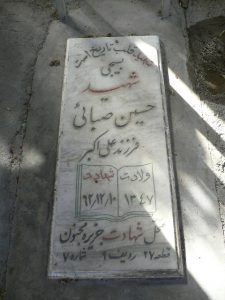 شهادت قلب تاریخ است
بسیجی
شهید
حسین صبائی
فرزند علی اکبر
ولادت شهادت
۱۳۴۷ ۶۲/۱۲/۱۰
محل شهادت جزیره مجنون
قطعه ۲۷ ردیف ۹ شماره ۷